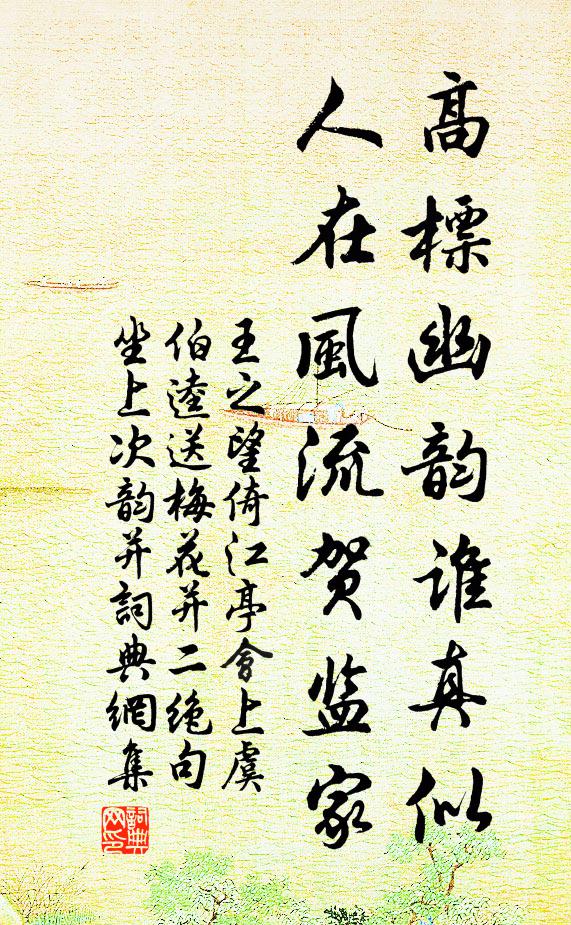 高標幽韵誰真似
人在風流贺监家
王之望倚江亭會上虞
伯逵送梅花并二绝句
坐上次韵并詞典網集
詞典网印